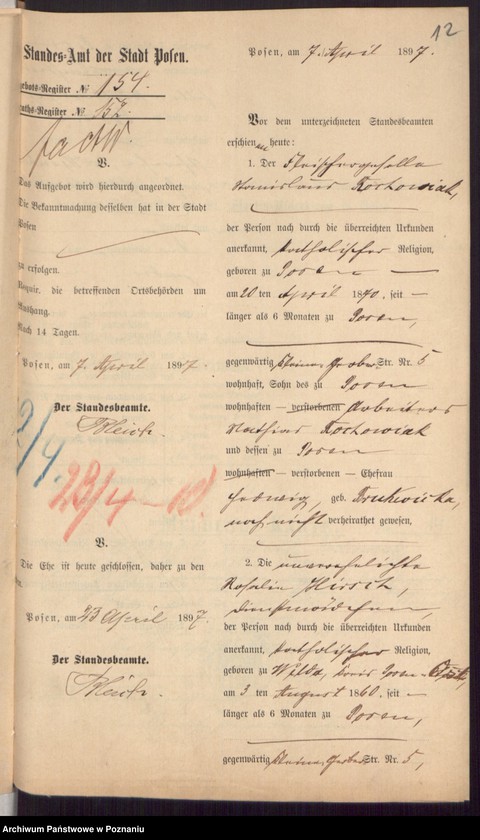 12
Standes-Amt der Stadt Posen.
gebots-Register № 154.
raths-Register №
V.
Das Aufgebot wird hierdurch angeordnet.
Die Bekanntmachung desselben hat in der Stadt
Posen
zu erfolgen.
Requir. die betreffenden Ortsbehörden um
Aushang.
Nach 14 Tagen.
Posen, am 7. April 1897.
Der Standesbeamte.
23/4
V.
Die Ehe ist heute geschlossen, daher zu den
Posen, am 23 April 1897.
Der Standesbeamte.
Posen, am 7. April 1897.
Vor dem unterzeichneten Standesbeamten
erschienen heute:
1. Der Fleischergeselle
Stanislaus
der Person nach durch die überreichten Urkunden
anerkannt, katholischer Religion,
geboren zu Posen —
am 20 ten April 1870, seit —
länger als 6 Monaten zu Posen,
gegenwärtig Kleine Gerber Str. Nr. 5
wohnhaft, Sohn des zu Posen
wohnhaften — verstorbenen Arbeiters
Mathias
und dessen zu Posen
wohnhaften — verstorbenen — Ehefrau
Hedwig, geb.
noch nicht verheirathet gewesen,
2. Die unverehelichte
Rosalie Hirsch,
Dienstmädchen,
der Person nach durch die überreichten Urkunden
anerkannt, katholischer Religion,
geboren zu Wilda, Kreis Posen
am 3 ten August 1860, seit —
länger als 6 Monaten zu Posen,
gegenwärtig Kleine Gerber Str. Nr. 5,
Archiwum Państwowe w Poznaniu